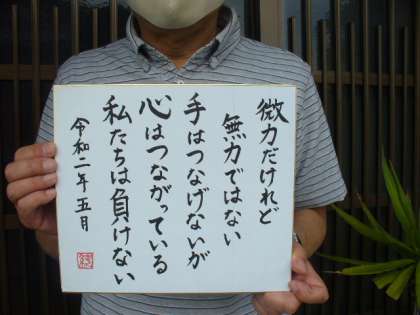 微力だけれど
無力ではない
手はつなげないが
心はつながっている
私たちは負けない
令和二年五月